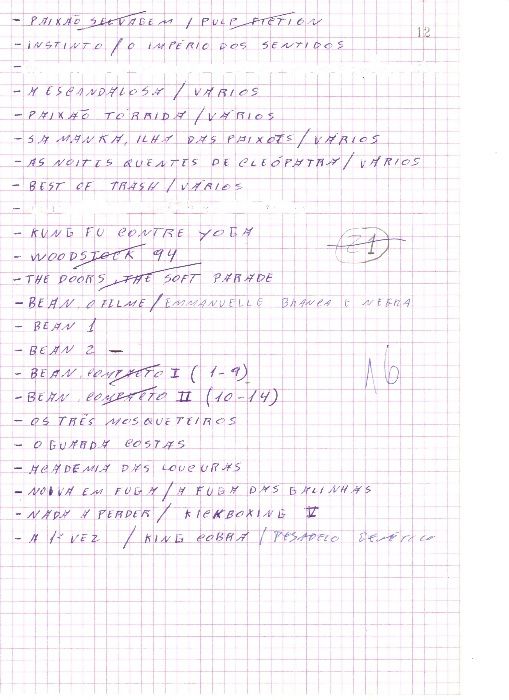 12
- PAIXÃO SELVAGEM / PULP FICTION
- INSTINTO / O IMPÉRIO DOS SENTIDOS
-
- A ESCANDALOSA / VÁRIOS
- PAIXÃO TÓRRIDA / VÁRIOS
- SAMANKA, ILHA DAS PAIXÕES / VÁRIOS
- AS NOITES QUENTES DE CLEÓPATRA / VÁRIOS
- BEST OF TRASH / VÁRIOS
-
- KUNG FU CONTRE YOGA
21
- WOODSTOCK 94
- THE DOORS, THE SOFT PARADE
- BEAN, O FILME / EMMANUELLE BRANCA E NEGRA
- BEAN 1
- BEAN 2 -
16
- BEAN, COMPACTO I (1-9)
- BEAN, COMPACTO II (10-14)
- OS TRÊS MOSQUETEIROS
- O GUARDA COSTAS
- ACADEMIA DAS LOUCURAS
- NOIVA EM FUGA / A FUGA DAS GALINHAS
- NADA A PERDER / KICKBOXING V
- A 1ª VEZ / KING COBRA / PESADELO GENÉTICO